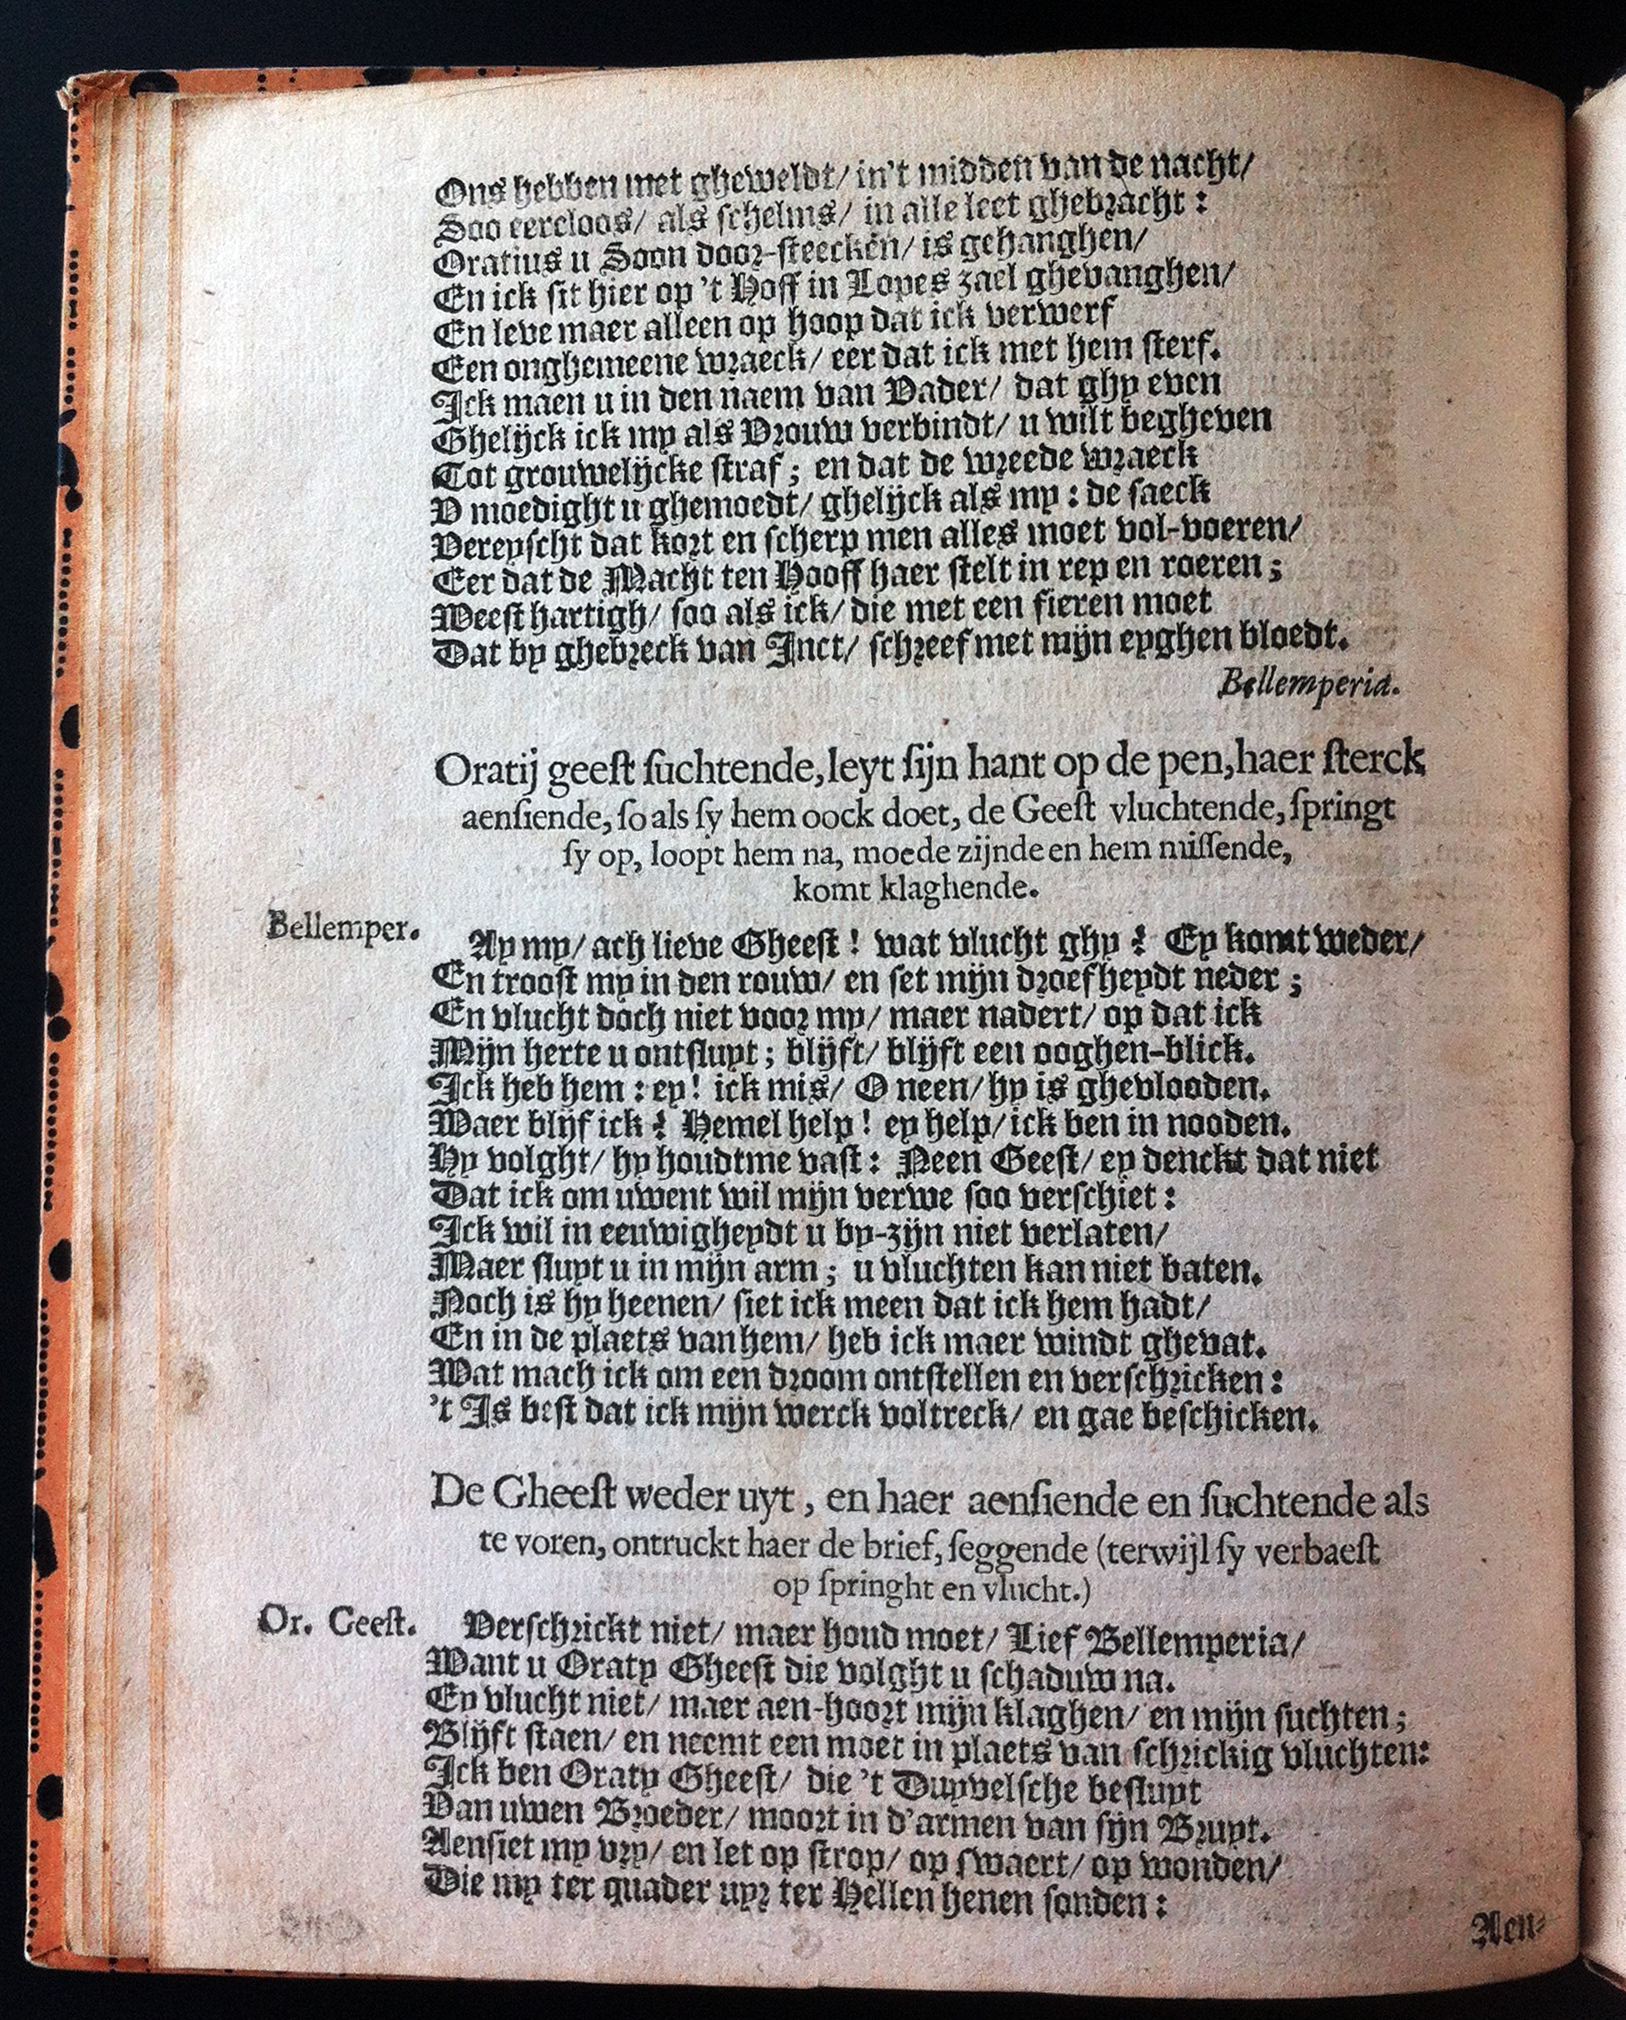 Ons hebben met gheweldt/ in't midden van de nacht/
Soo eerloos/ als schelms/ in alle leet ghebracht:
Oratius u Soon door-steecken/ is gehanghen/
En ick sit hier op 't Hoff in Lopes zael ghevanghen/
En leve maer alleen op hoop dat ick verwerf
Een onghemeene wraeck/ eer dat ick met hem sterf.
Ick maen u in den naem van Vader/ dat ghy even
Ghelijck ick my als Vrouw verbindt/ u wilt begheven
Tot grouwelijcke straf; en dat de wreede wraeck
V moedight u ghemoedt/ ghelijck als my: de saeck
Vereyscht dat kort en scherp men alles moet vol-voeren/
Eer dat de Macht ten Hooff haer stelt in rep en roeren;
Weest hartigh/ soo als ick/ die met een fieren moet
Dat by ghebreck van Inct/ schreef met mijn eyghen bloedt.
Bellemperia.
Oratij geest suchtende, leyt sijn hant op de pen, haer sterck
aensiende, so als sy hem oock doet, de Geest vluchtende, springt
sy op, loopt hem na, moede zijnde en hem missende,
komt klaghende.
Bellemper. Ay my/ ach lieve Gheest! wat vlucht ghy? Ey komt weder/
En troost my in den rouw/ en set mijn droefheydt neder;
En vlucht doch niet voor my/ maer nadert/ op dat ick
Mijn herte u ontsluyt; blijft/ blijft een ooghen-blick.
Ick heb hem: ey! ick mis/ O neen/ hy is ghevlooden.
Waer blijf ick? Hemel help! ey help/ ick ben in nooden.
Hy volght/ hy houdtme vast: Neen Geest/ ey denckt dat niet
Dat ick om uwent wil mijn verwe soo verschiet:
Ick wil in eeuwigheydt u by-zijn niet verlaten/
Maer sluyt u in mijn arm; u vluchten kan niet baten.
Noch is hy heenen/ siet ick meen dat ick hem hadt/
En in de plaets van hem/ heb ick maer windt ghevat.
Wat mach ick om een droom ontstellen en verschricken:
't Is best dat ick mijn werck voltreck/ en gae beschicken.
De Gheest weder uyt, en haer aensiende en suchtende als
te voren, ontruckt haer de brief, seggende (terwijl sy verbaest
op springht en vlucht.)
Or. Geest. Verschrickt niet/ maer houd moet/ Lief Bellemperia/
Want u Oraty Gheest die volght u schaduw na.
Ey vlucht niet/ maer aen-hoort mijn klaghen/ en mijn suchten;
Blijft staen/ en neemt een moet in plaets van schrickig vluchten:
Ick ben Oraty Gheest/ die 't Duyvelsche besluyt
Van uwen Broeder/ moort in d'armen van sijn Bruyt.
Aensiet my vry/ en let op strop/ op swaert/ op wonden/
Die my ter quader uyr ter Hellen henen sonden:
Aen-